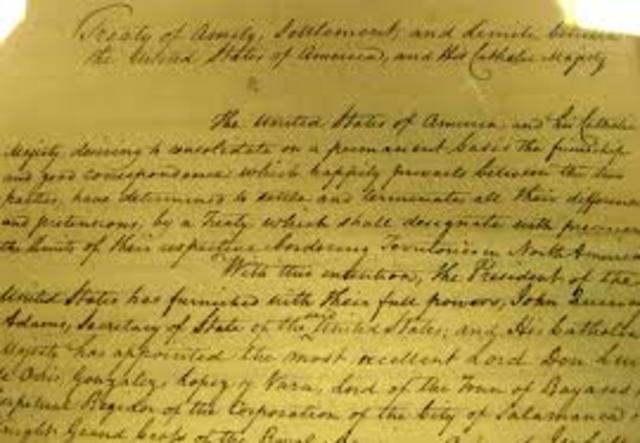 Treaty of Amity, Settlement, and Limits between
the United States of America, and His Catholic Majesty
The United States of America and his Catholic
Majesty, desiring to consolidate on a permanent basis the friendship
and good correspondence which happily prevails between the two
parties, have determined to settle and terminate all their difference
and pretensions, by a Treaty, which shall designate with precision
the limits of their respective bordering Territories in North America
With this intention, the President of the
United States has furnished with their full powers, John Quincy
Adams, Secretary of State of the United States; and His Catholic
Majesty has appointed the most excellent Lord Don Luis
de Onis, Gonzalez, Lopez y Vara, Lord of the Town of Rayaces
Perpetual Regidor of the Corporation of the City of Salamanca
Knight Grand Cross of the Royal